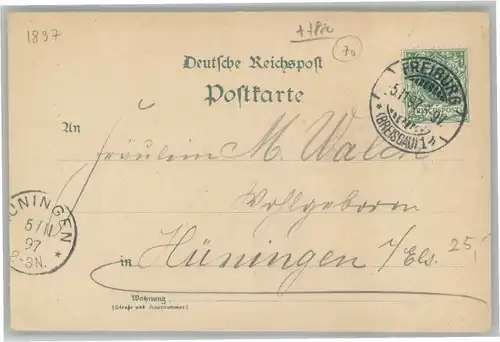 1897
70
Deutsche Reichspost
Postkarte
FREIBURG
5.11.97
(BREISGAU) 1
An
Fräulein M.
Wohlgeboren
in Hüningen i/Els.
25,
ÜNINGEN
5/11
97
N.
Wohnung
(Straße und Hausnummer)